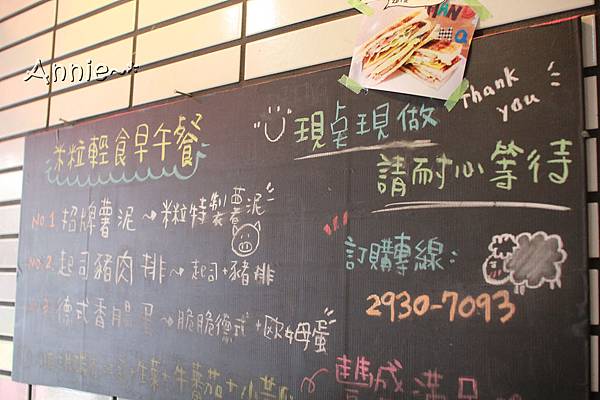 Annie~*
米粒輕食早午餐
No.1. 招牌薯泥→米粒特製薯泥
No.2. 起司豬肉排~起司+豬排
德式香腸蛋→脆脆德式+歐姆蛋
生菜+牛蕃茄+小黃瓜
豐盛滿足
現桌現做
請耐心等待
Thank you
訂購專線:
2930-7093